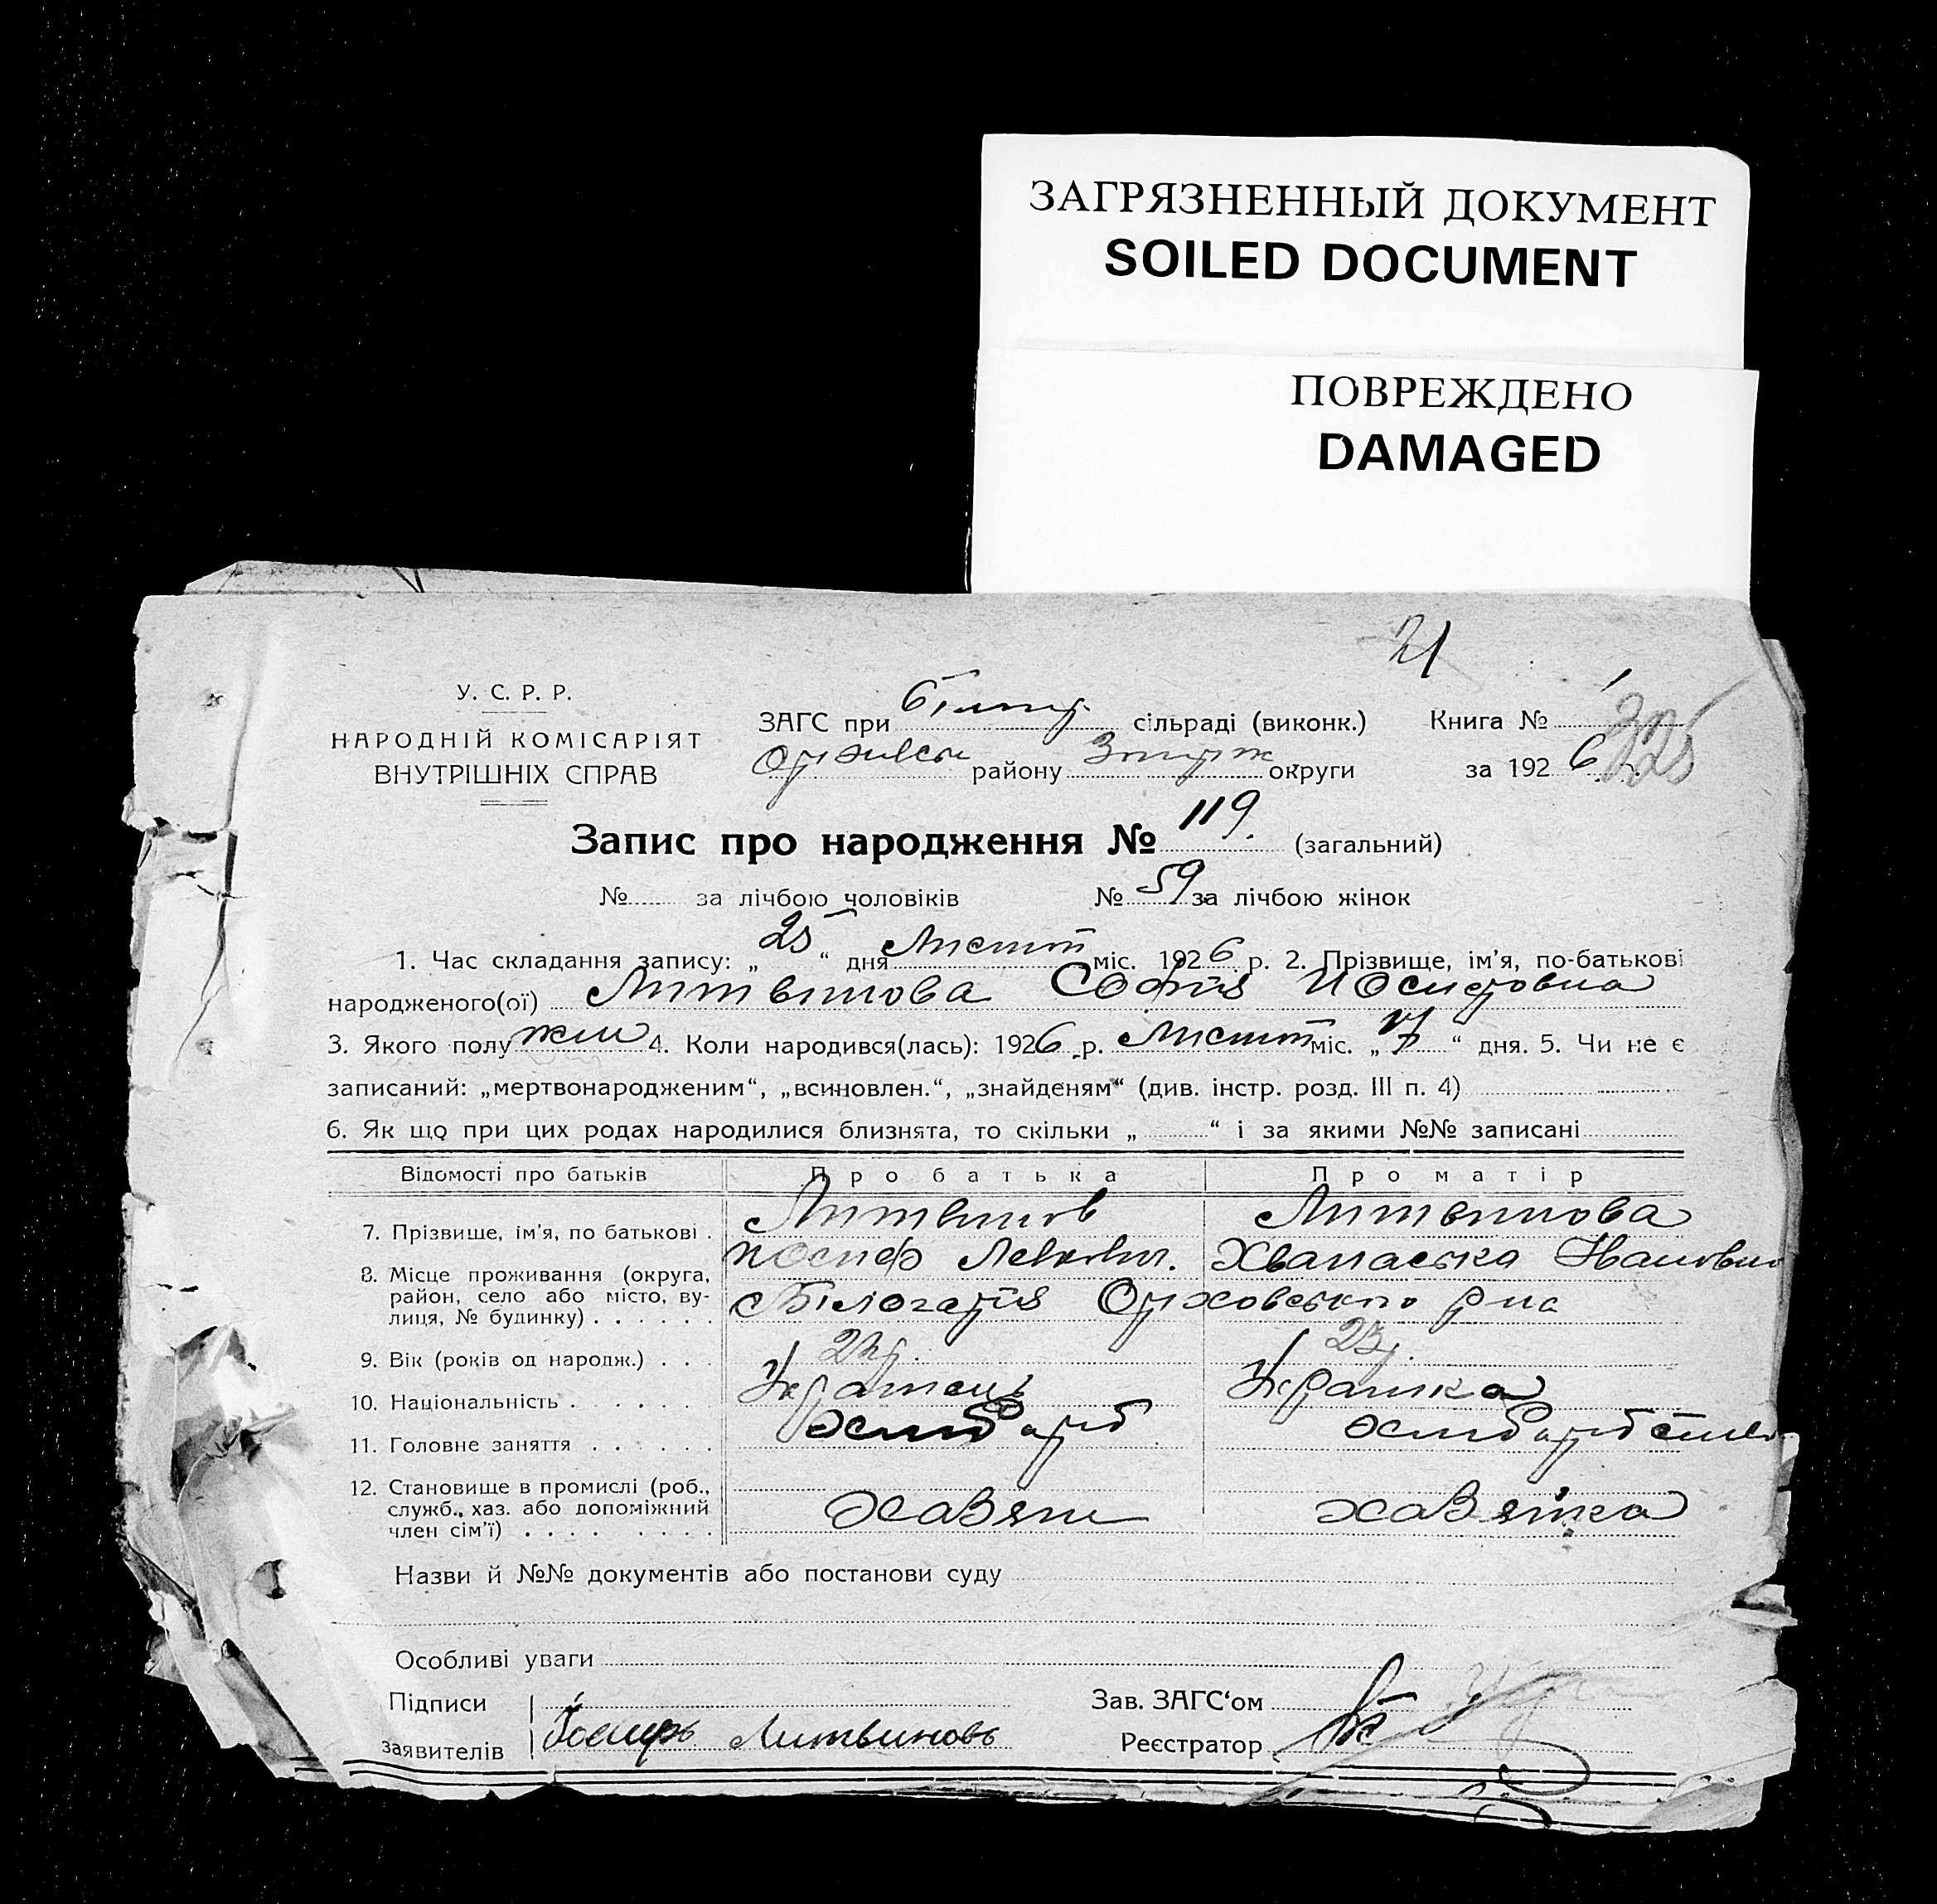 ЗАГРЯЗНЕННЫЙ ДОКУМЕНТ
SOILED DOCUMENT
ПОВРЕЖДЕНО
DAMAGED
21
У. С. Р. Р.
НАРОДНІЙ КОМІСАРІЯТ
ВНУТРІШНІХ СПРАВ
ЗАГС при сільраді (виконк.) Книга №
району округи за 1926
Запис про народження № 119. (загальний)
№ за лічбою чоловіків № 59 за лічбою жінок
1. Час складання запису: „25“ дня Листоп міс. 1926 р. 2. Прізвище, ім'я, по-батькові
народженого(ої) Литвинова Софія Иосиповна
3. Якого полу жін 4. Коли народився(лась): 1926 р. Листоп міс. „ “ дня. 5. Чи не є
записаний: „мертвонародженим“, „всиновлен.“, „знайденям“ (див. інстр. розд. III п. 4)
6. Як що при цих родах народилися близнята, то скільки „ “ і за якими №№ записані
Відомості про батьків Про батька Про матір
7. Прізвище, ім'я, по батькові . Литвинов Литвинова
Иосиф Левков. Хванаська Ивановна
8. Місце проживання (округа,
район, село або місто, ву-
лиця, № будинку) . . . . . . Білогарія Оріховського р-на
9. Вік (років од народж.) . . . 23
10. Національність . . . . . . Українець Українка
11. Головне заняття . . . . . . хлібороб
12. Становище в промислі (роб.,
служб., хаз. або допоміжний
член сім'ї) . . . . . . . . . хазяїн хазяйка
Назви й №№ документів або постанови суду
Особливі уваги
Підписи Зав. ЗАГС'ом
заявителів Іосифъ Литвиновъ Реєстратор